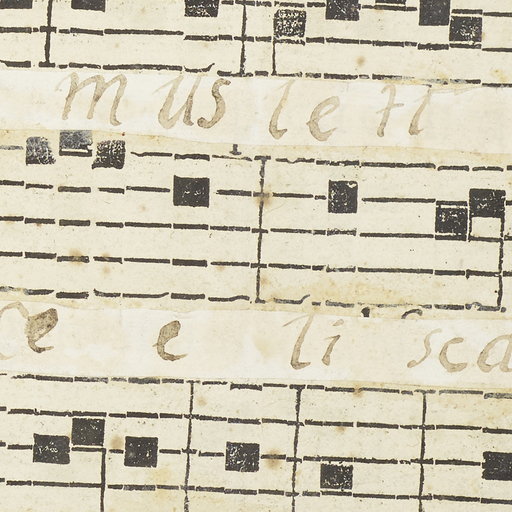 mus le
e e li sca